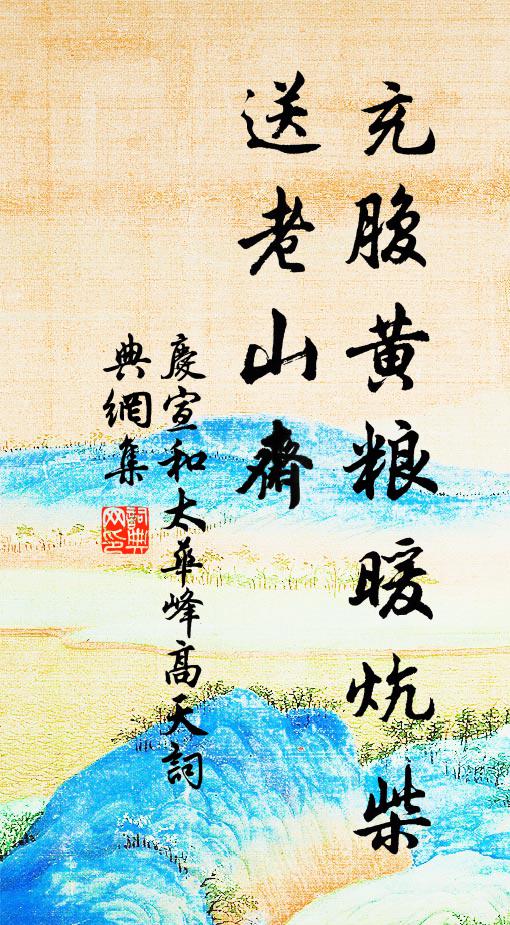 充腹黄粮暖炕柴
送老山齋
慶宣和太華峰高天詞
典網集
詞典
网印